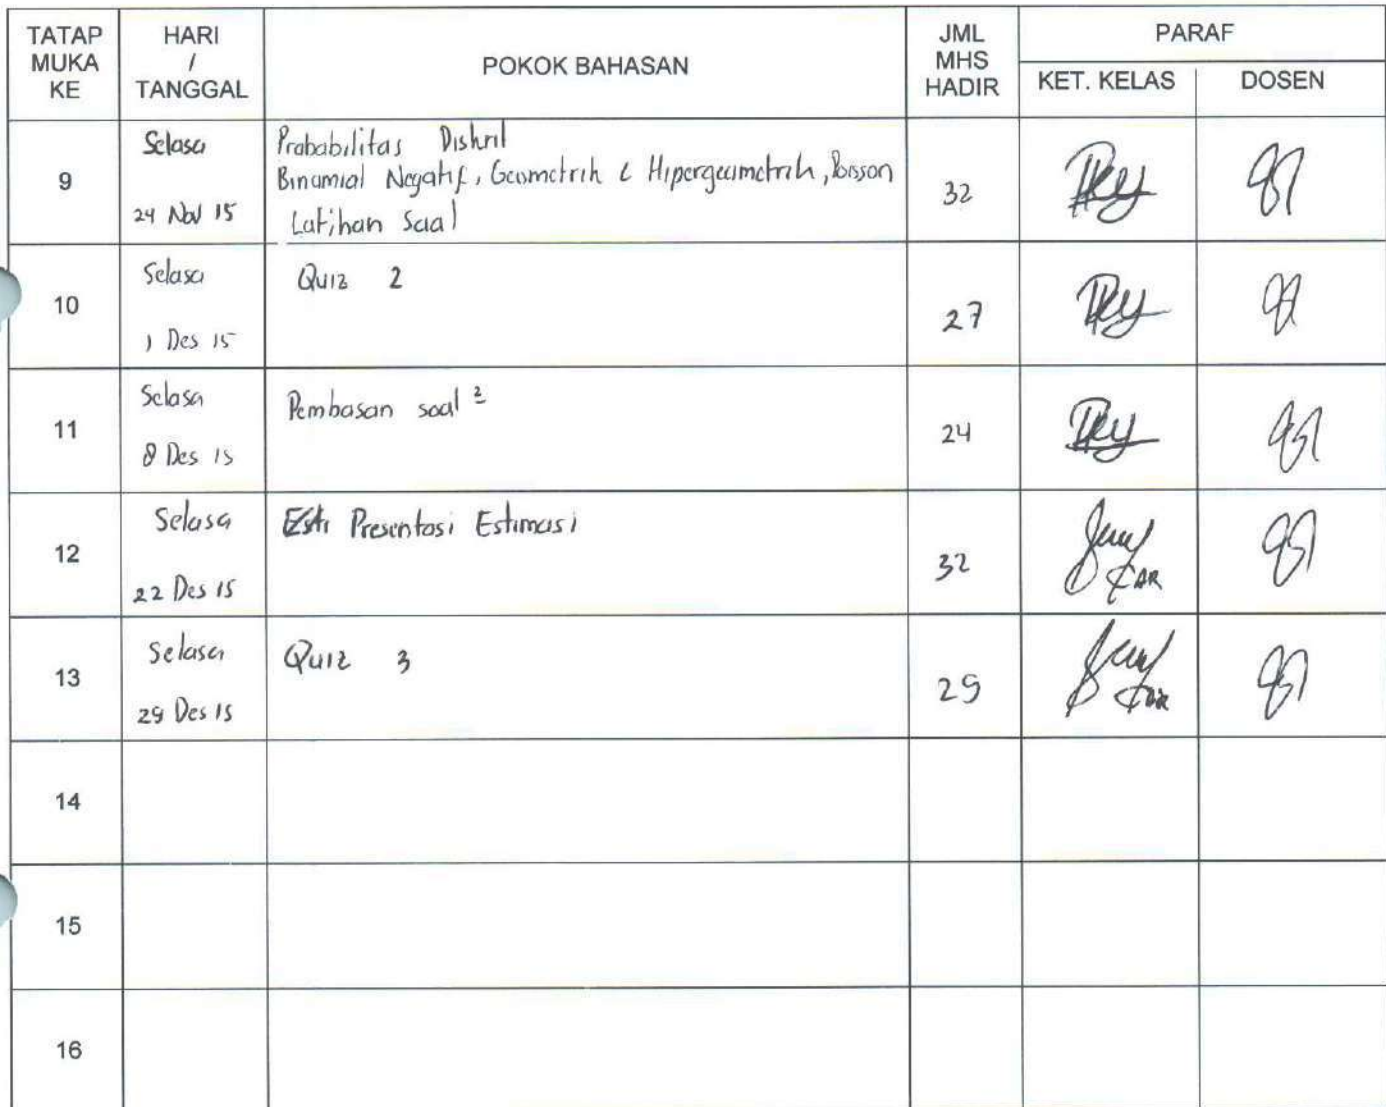 TATAP MUKA KE
HARI / TANGGAL
POKOK BAHASAN
JML MHS HADIR
PARAF
KET. KELAS
DOSEN
9
Selasa
24 Nov 15
Probabilitas Diskrit
Binomial Negatif, Geometrik & Hipergeometrik, Poisson
Latihan Soal
32
10
Selasa
1 Des 15
Quiz 2
27
11
Selasa
8 Des 15
Pembasan soal ²
24
12
Selasa
22 Des 15
Presentasi Estimasi
32
13
Selasa
29 Des 15
Quiz 3
29
14
15
16